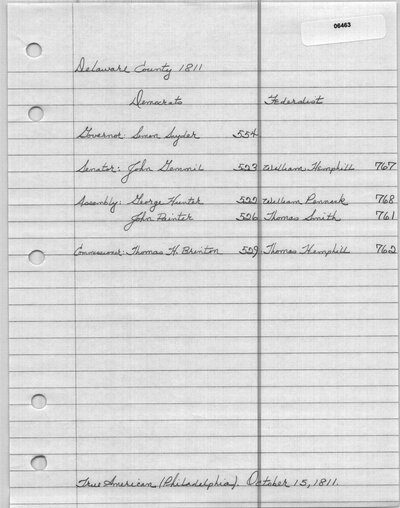 06463
Delaware County 1811
Democrats Federalist
Governor: Simon Snyder 554
Senator: John Gemmil 523 William Hemphill 767
Assembly: George Hunter 522 William Pennock 768
John Painter 526 Thomas Smith 761
Commissioner: Thomas H. Brinton 529 Thomas Hemphill 762
True American (Philadelphia). October 15, 1811.